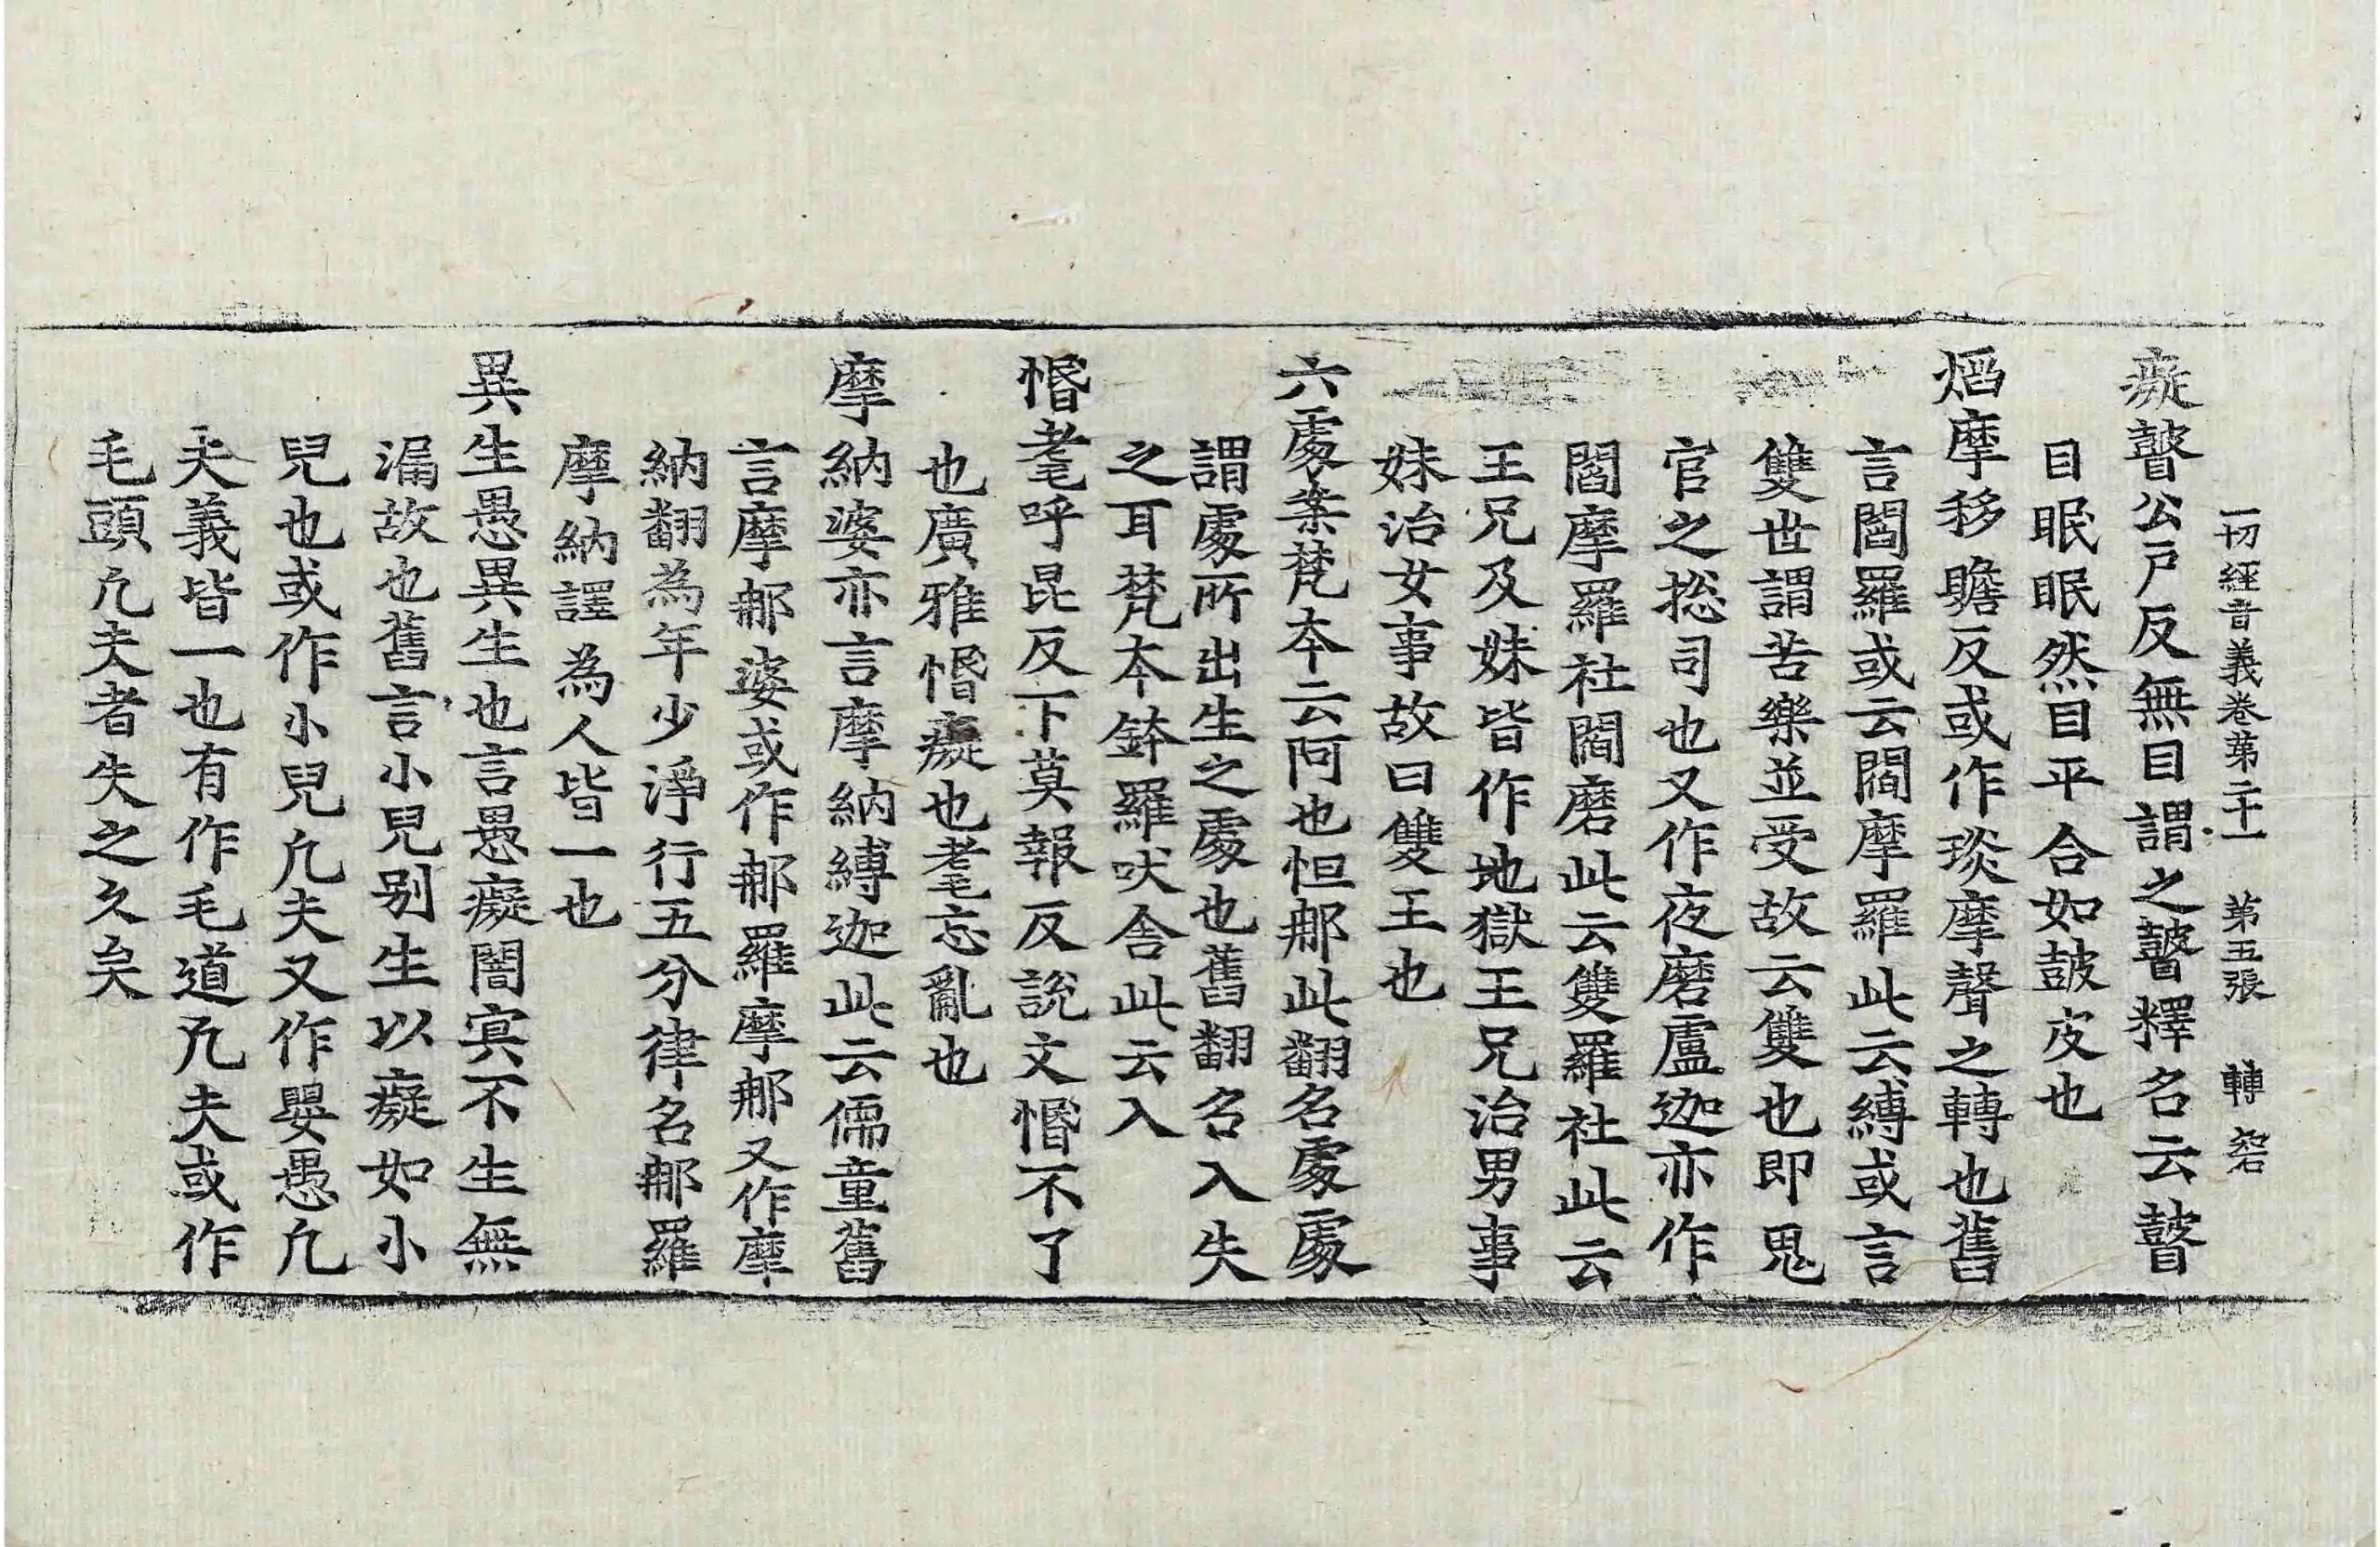 一切經音義卷第二十一 第五張 轉
癡瞽公戶反無目謂之瞽釋名云瞽
目眠眠然目平合如皷皮也
焰摩移贍反或作琰摩聲之轉也舊
言閻羅或云閻摩羅此云縛或言
雙世謂苦樂並受故云雙也即鬼
官之捴司也又作夜磨盧迦亦作
閻摩羅社閻磨此云雙羅社此云
王兄及妹皆作地獄王兄治男事
妹治女事故曰雙王也
六處案梵夲云阿也怛那此翻名處處
謂處所出生之處也舊翻名入失
之耳梵夲鉢羅吠舍此云入
惛耄呼昆反下莫報反說文惛不了
也廣雅惛癡也耄忘亂也
摩納婆亦言摩納縛迦此云儒童舊
言摩那婆或作那羅摩那又作摩
納翻為年少淨行五分律名那羅
摩納譯為人皆一也
異生愚異生也言愚癡闇冥不生無
漏故也舊言小兒别生以癡如小
兒也或作小兒凢夫又作嬰愚凢
夫義皆一也有作毛道凢夫或作
毛頭凢夫者失之久矣